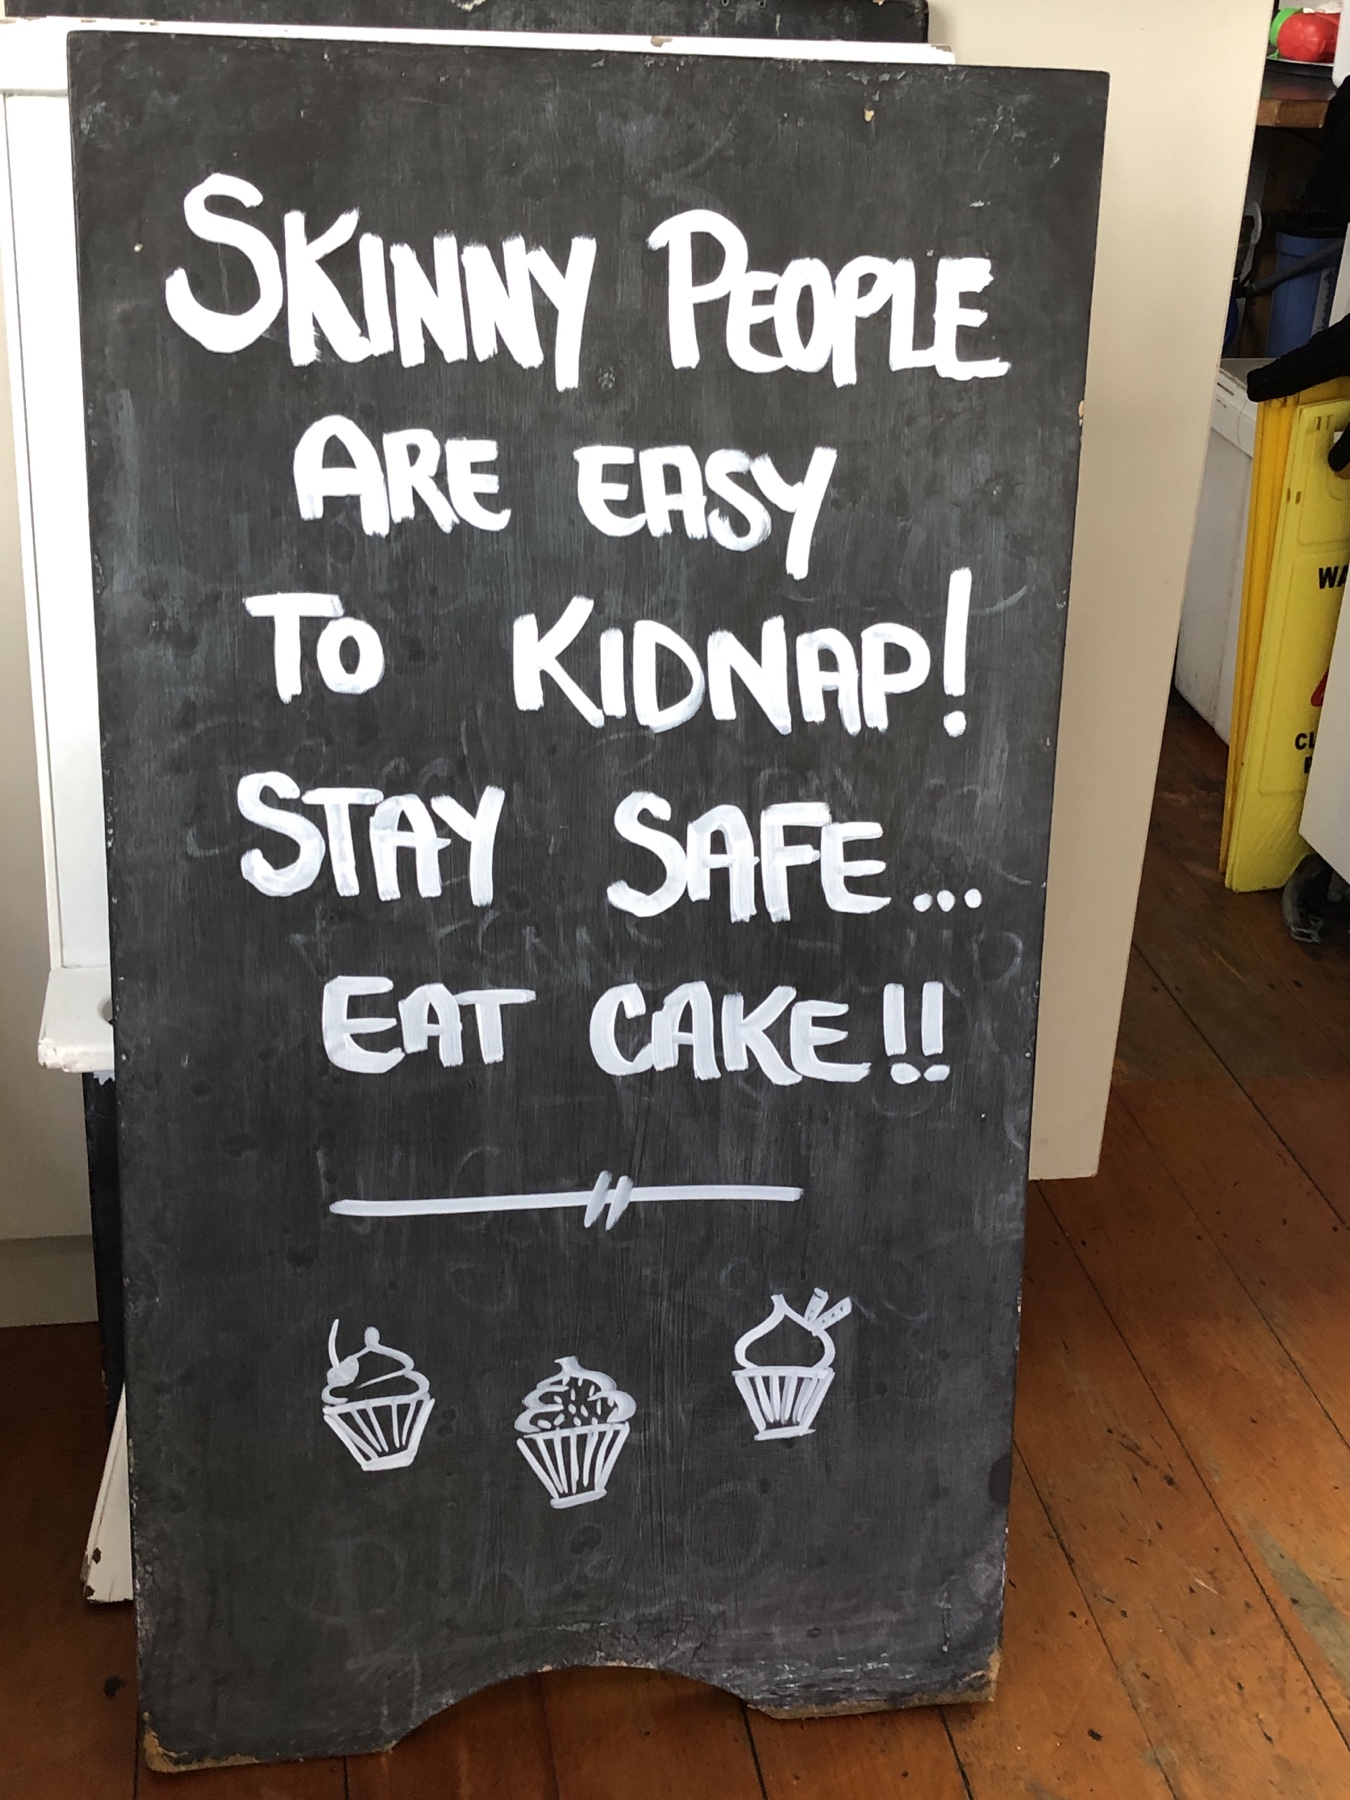 SKINNY PEOPLE
ARE EASY
TO KIDNAP!
STAY SAFE...
EAT CAKE!!